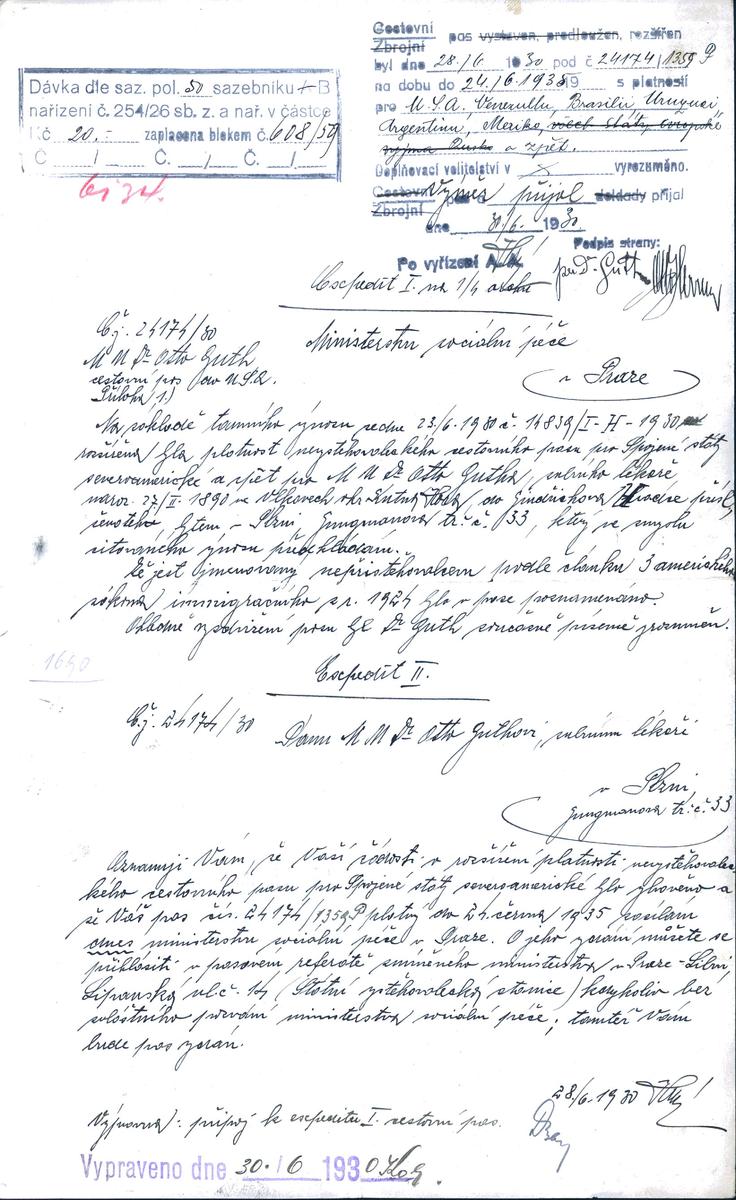 Dávka dle saz. pol. 50 sazebníku B
nařízení č. 254/26 sb. z. a nař. v částce
Kč 20.- zaplacena blokem č. 608/59
Č / Č. / Č. /
Cestovní
Zbrojní pas vystaven, predloužen, rozšířen
byl dne 28./6 1930 pod č 24174/1359 P
na dobu do 24./6.1935 s platností
pro U.S.A., Venezuellu, Brasilii, Uruguai,
Argentinu, Mexiko, všech státy evropské
vyjma Ruska a zpět.
Doplňovací velitelství v vyrozuměno.
Cestovní
Zbrojní Výměr přijal doklady přijal
dne 30/6. 1930.
Podpis strany:
Po vyřízení A. A.
Expedit I. na 1/4 archu
Č.j. 24174/30
MUDr Otto Guth
cestovní pas do U.S.A.
Příloha 1.)
Ministerstvu sociální péče
v Praze
Na základě tamního výnosu ze dne 23./6. 1930 č. 14839/I-H-1930
rozšířena byla platnost nevystěhovaleckého cestovního pasu pro Spojené státy
severoamerické a zpět pro MUDr Otto Gutha, zubního lékaře,
naroz. 27/II. 1890 ve Vlkavech okr. Kutná Hora do Jindřichova Hradce přísl.
bytem - Plzni, Jungmanova tř. č. 33, který ve smyslu
citovaného výnosu předkládám.
Že jest jmenovaný nepřistěhovalcem podle článku 3 amerického
zákona immigračního z r. 1924 bylo v pase poznamenáno.
O vyzdvižení pasu byl Dr Guth současně písemně zrozuměn.
1690
Expedit II.
Č.j. 24174/30
Panu MUDr Otto Guthovi, zubnímu lékaři
v Plzni,
Jungmanova tř. č. 33
Oznamuji Vám, že Vaší žádosti o rozšíření platnosti nevystěhovalec-
kého cestovního pasu pro Spojené státy severoamerické bylo vyhověno a
že Váš pas čís. 24174/1359 P platný do 24. června 1935 zasílám
dnes ministerstvu sociální péče v Praze. O jeho vydání můžete se
přihlásiti v pasovém referátě zmíněného ministerstva v Praze-
Lipanská ul. č. 14 (Státní vystěhovalecká stanice) kdykoliv bez
zvláštního pozvání ministerstva sociální péče; tamtéž Vám
bude pas vydán.
28/6. 1930
Výpravna: připoj k expeditu I. cestovní pas.
Vypraveno dne 30./6 1930